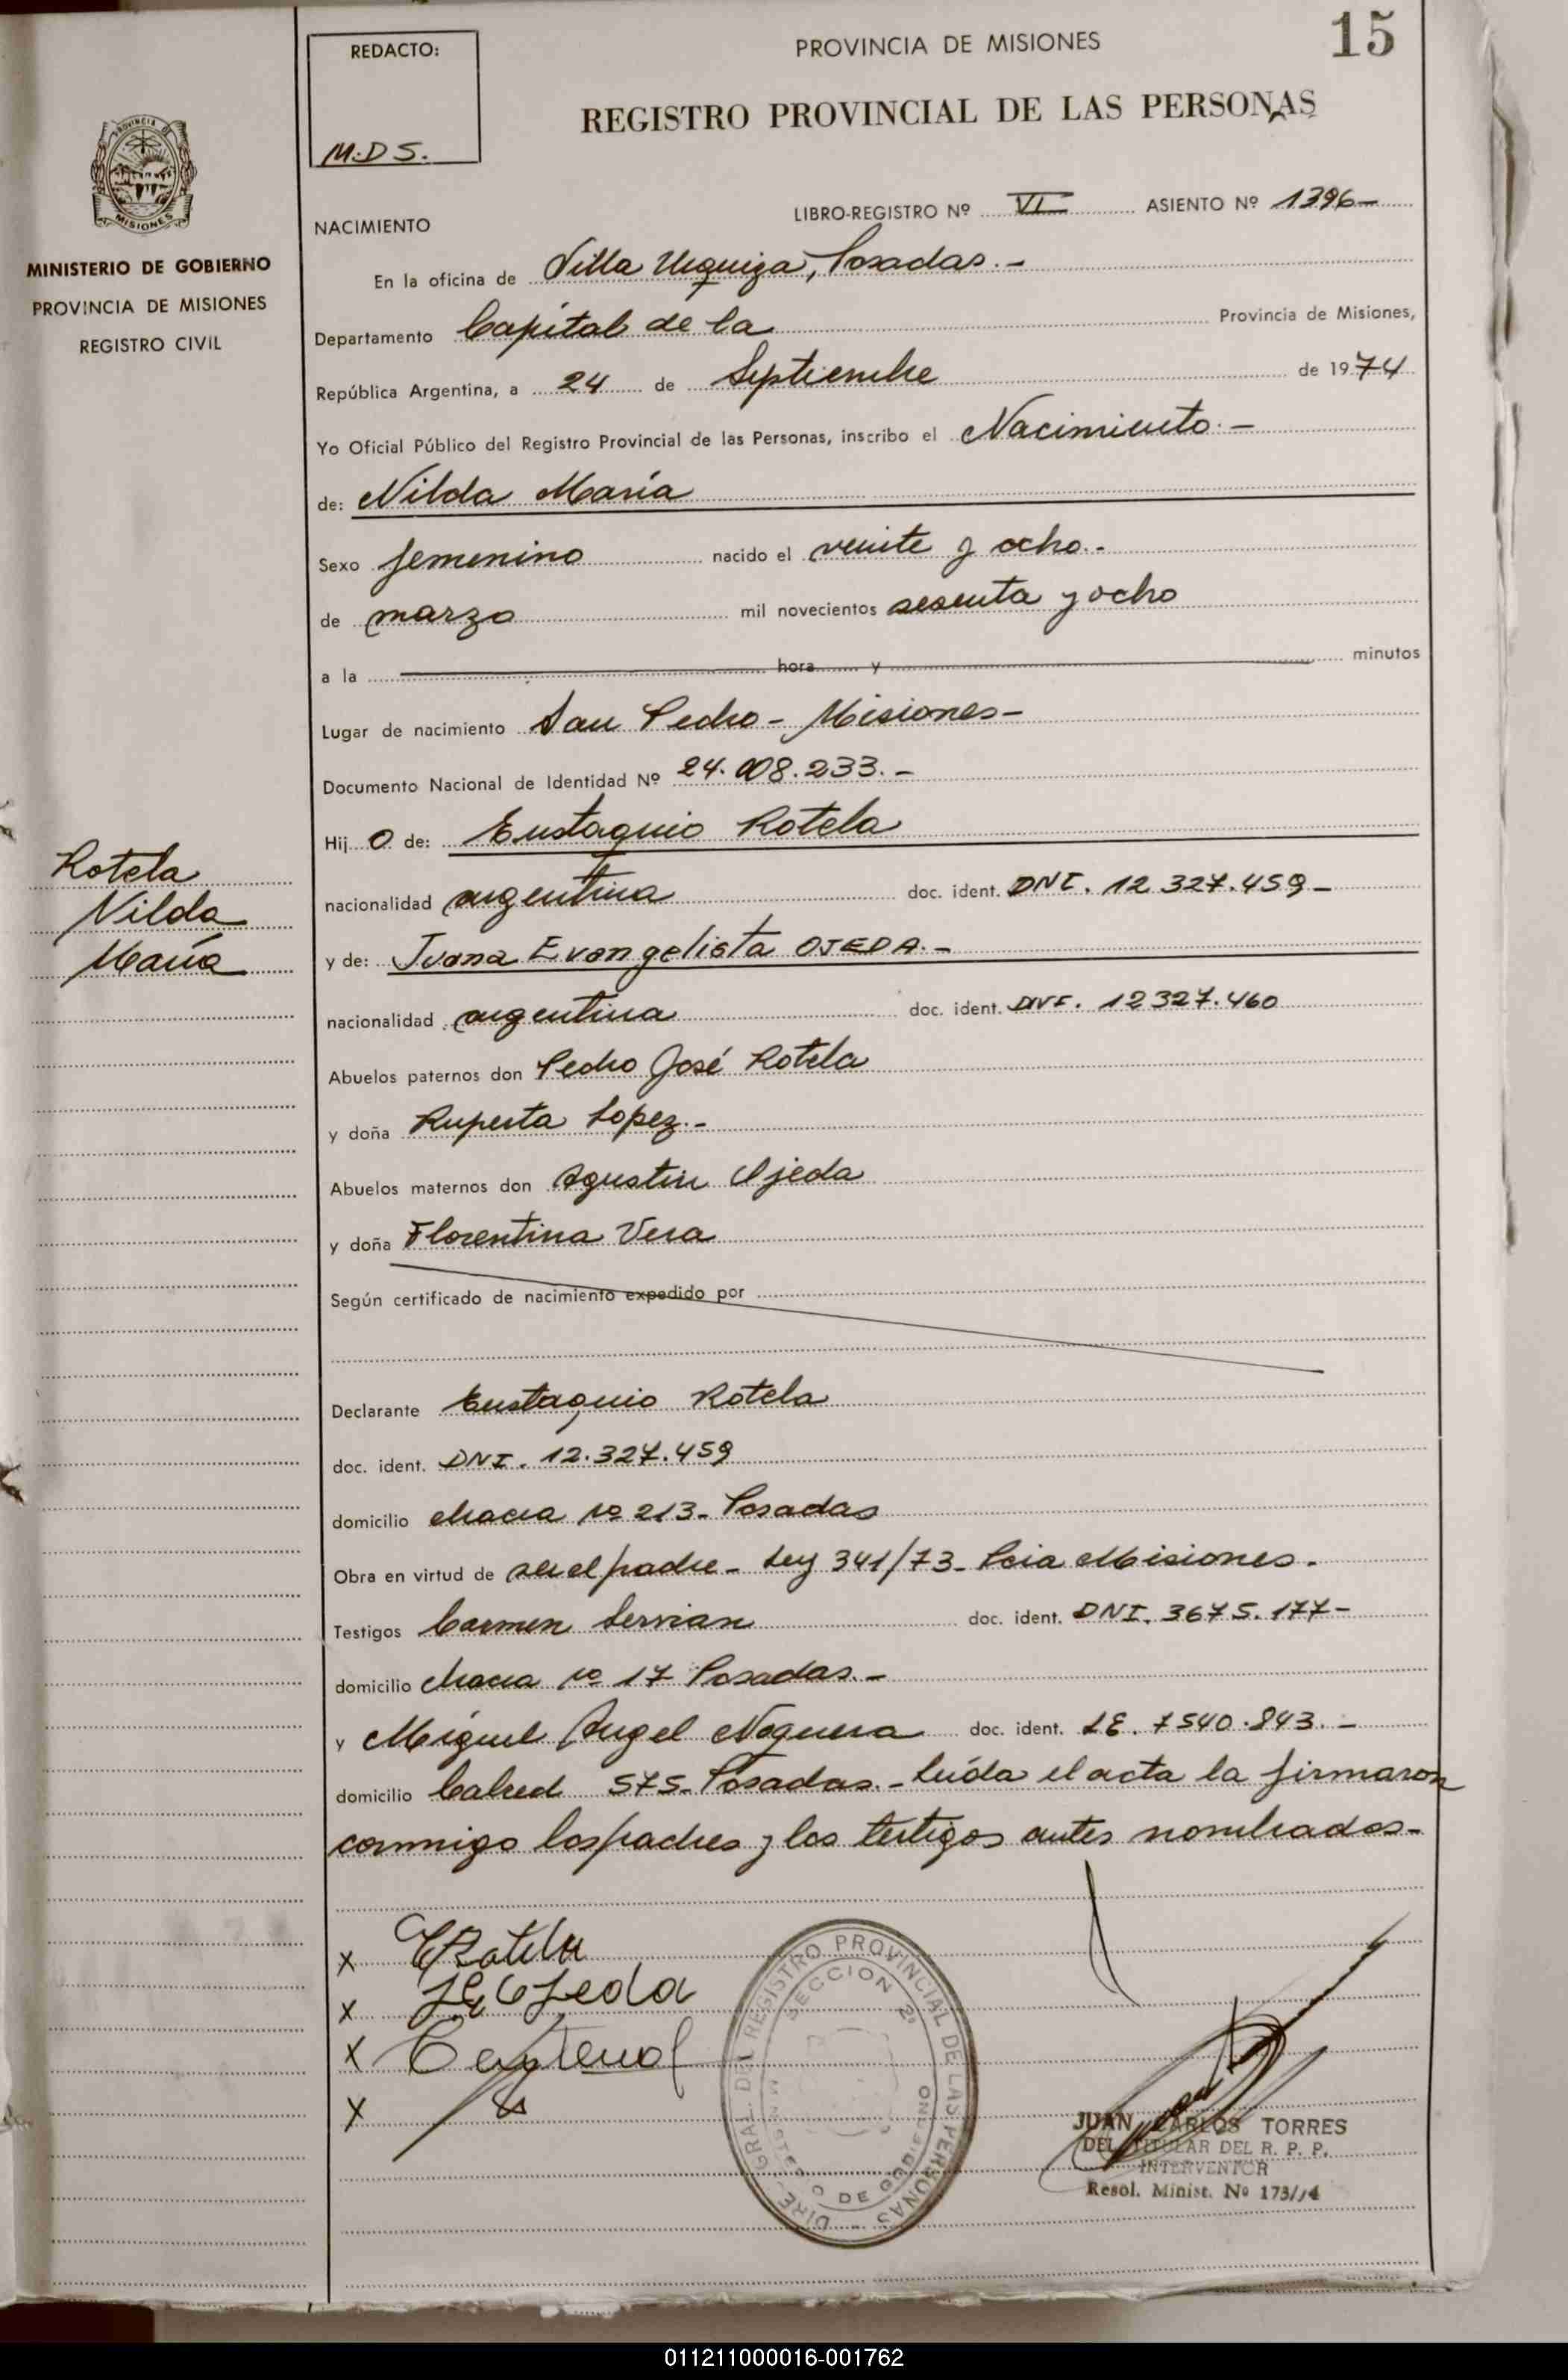 15
REDACTO:
M.D S.
PROVINCIA DE MISIONES
REGISTRO PROVINCIAL DE LAS PERSONAS
PROVINCIA DE
MISIONES
MINISTERIO DE GOBIERNO
PROVINCIA DE MISIONES
REGISTRO CIVIL
LIBRO-REGISTRO Nº VI ASIENTO Nº 1396-
NACIMIENTO
En la oficina de Villa Urquiza, Posadas.-
Departamento Capital de la Provincia de Misiones,
República Argentina, a 24 de Septiembre de 1974
Yo Oficial Público del Registro Provincial de las Personas, inscribo el Nacimiento.-
de: Nilda María
Sexo femenino nacido el veinte y ocho.-
de marzo mil novecientos sesenta y ocho
a la hora y minutos
Lugar de nacimiento San Pedro - Misiones-
Documento Nacional de Identidad Nº 24.008.233.-
Hij o de: Eustaquio Rotela
Rotela
Nilda
María
nacionalidad argentina doc. ident. DNI. 12 327.459-
y de: Juana Evangelista OJEDA.-
nacionalidad argentina doc. ident. DNI. 12327.460
Abuelos paternos don Pedro José Rotela
y doña Ruperta Lopez.-
Abuelos maternos don Agustin Ojeda
y doña Florentina Vera
Según certificado de nacimiento expedido por
Declarante Eustaquio Rotela
doc. ident. DNI. 12.327.459
domicilio chacra nº 213- Posadas
Obra en virtud de ser el padre- Ley 341/73- Pcia Misiones.
Testigos Carmen Servian doc. ident. DNI. 3675.177-
domicilio chacra nº 17 Posadas.-
y Miguel Angel Noguera doc. ident. LE. 7540.843.-
domicilio 575- Posadas.- Leída el acta la firmaron
conmigo los padres y los testigos antes nombrados-
x ERotela
x J.E. Ojeda
x
x
DIRE. GRAL. DEL REGISTRO PROVINCIAL DE LAS PERSONAS
SECCION 2ª
MINISTERIO DE GOBIERNO
JUAN CARLOS TORRES
DEL. TITULAR DEL R. P. P.
INTERVENTOR
Resol. Minist. Nº 173/74
011211000016-001762